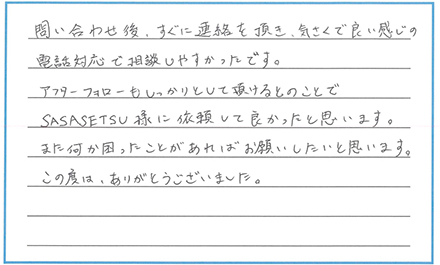 問い合わせ後、すぐに連絡を頂き、気さくで良い感じの
電話対応で相談しやすかったです。
アフターフォローもしっかりとして頂けるとのことで
SASASETSU様に依頼して良かったと思います。
また何か困ったことがあればお願いしたいと思います。
この度は、ありがとうございました。